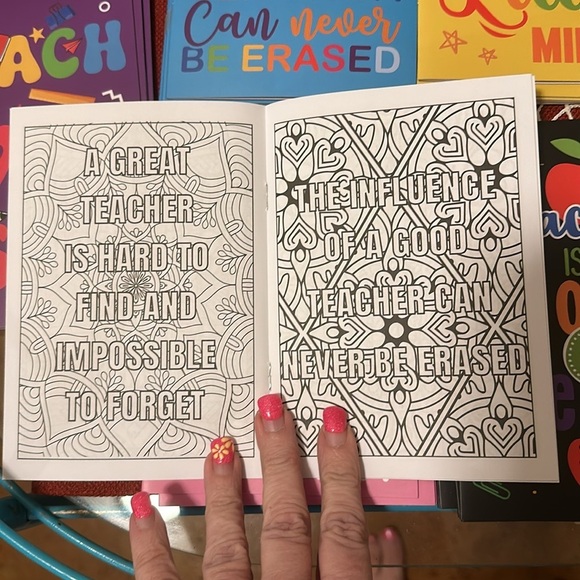 EACH
Can never
BE ERASED
MIN
A GREAT
TEACHER
IS HARD TO
FIND AND
IMPOSSIBLE
TO FORGET
THE INFLUENCE
OF A GOOD
TEACHER CAN
NEVER BE ERASED
IS